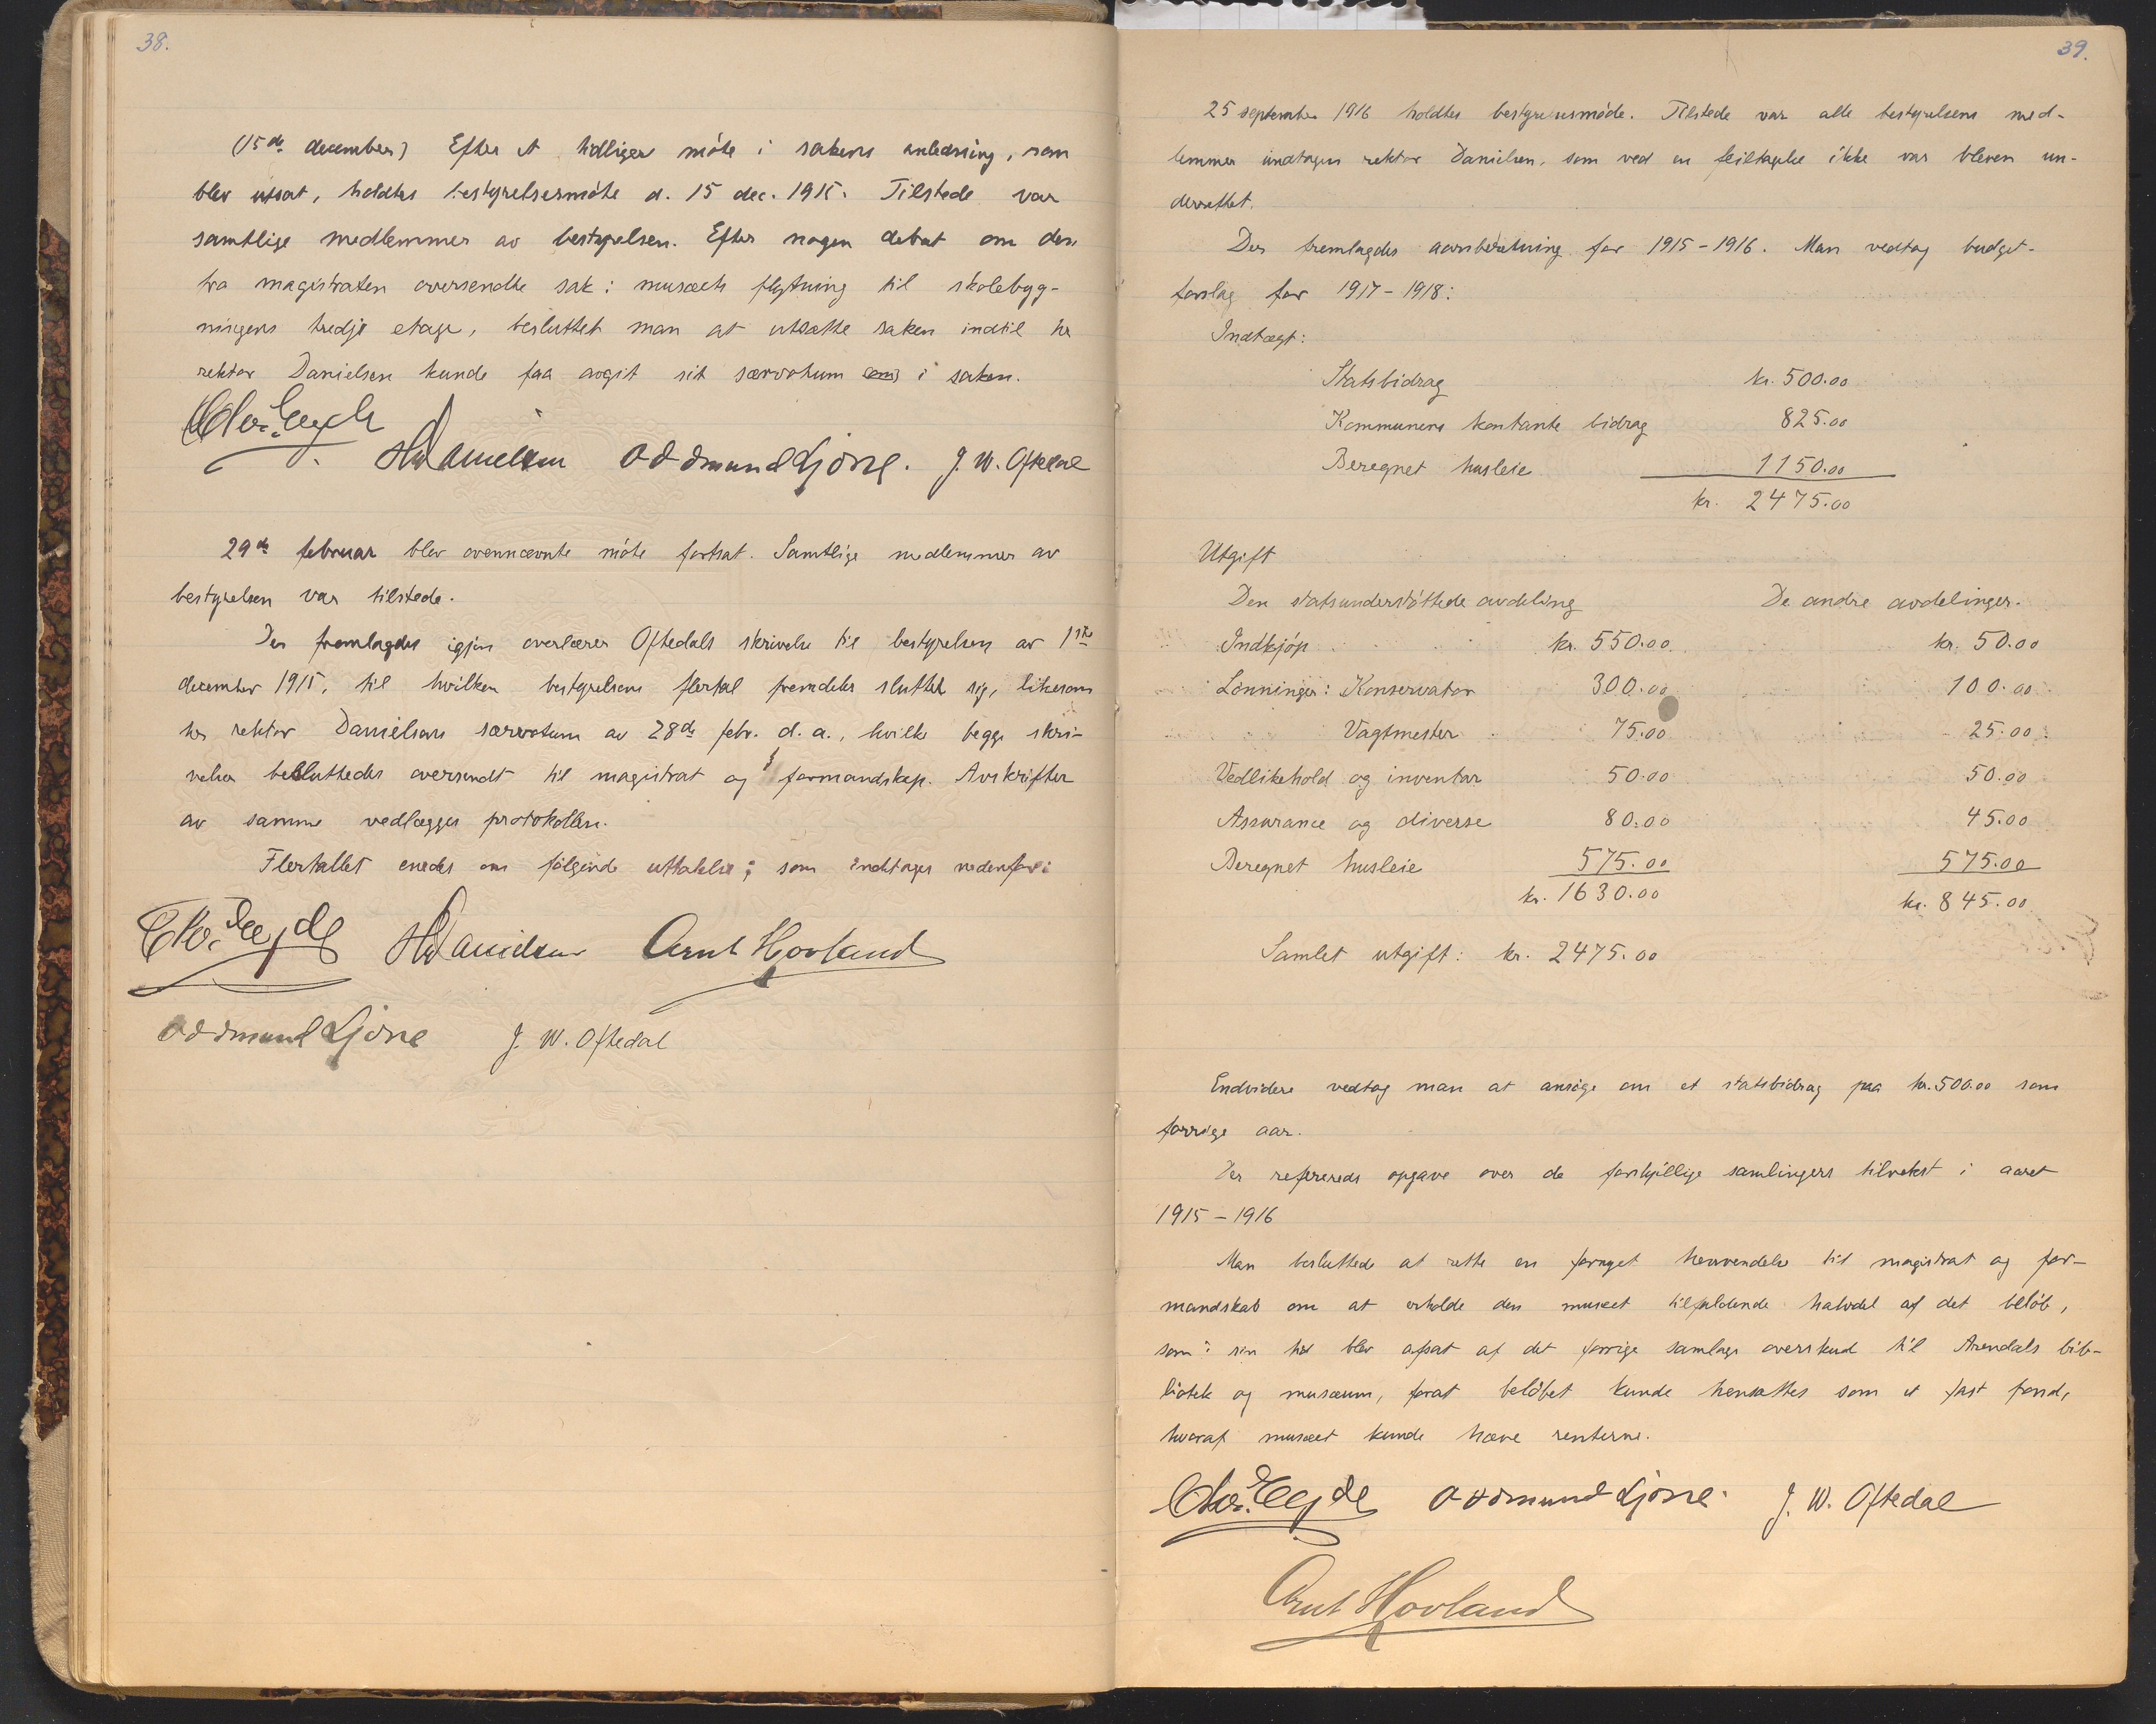 38.
(15de december) Efter et tidligere møte i sakens anledning, som
blev utsat, holdtes bestyrelsesmøte d. 15 dec. 1915. Tilstede var
samtlige medlemmer av bestyrelsen. Efter nogen debat om den
fra magistraten oversendte sak: musæets flytning til skolebyg-
ningens tredje etage, besluttet man at utsætte saken indtil hr
rektor Danielsen kunde faa avgit sit særvotum i saken.
Chr. Eyde
HDanielsen Oddmund Ljone. J. W. Oftedal
29de februar blev ovennævnte møte fortsat. Samtlige medlemmer av
bestyrelsen var tilstede.
Der fremlagdes igjen overlærer Oftedals skrivelse til bestyrelsen av 1ste
december 1915, til hvilken bestyrelsens flertal fremdeles sluttet sig, likesom
hr rektor Danielsens særvotum av 28de febr. d. a., hvilke begge skri-
velser besluttedes oversendt til magistrat og formandskap. Avskrifter
av samme vedlægges protokollen.
Flertallet enedes om følgende uttalelse; som indtages nedenfor:
Chr. Eyde HDanielsen Arnt Hovland
Oddmund Ljone J. W. Oftedal
39.
25 september 1916 holdtes bestyrelsesmøde. Tilstede var alle bestyrelsens med-
lemmer undtagen rektor Danielsen, som ved en feiltagelse ikke var bleven un-
derrettet.
Der fremlagdes aarsberetning for 1915-1916. Man vedtog budget-
forslag for 1917-1918:
Indtægt:
Statsbidrag kr. 500.00
Kommunens kontante bidrag 825.00
Beregnet husleie 1150.00
kr. 2475.00
Utgift
Den statsunderstøttede avdeling De andre avdelinger.
Indkjøp kr. 550.00 kr. 50.00
Lønninger: Konservator 300.00 100.00
Vagtmester 75.00 25.00
Vedlikehold og inventar 50.00 50.00
Assurance og diverse 80.00 45.00
Beregnet husleie 575.00 575.00
kr. 1630.00 kr. 845.00
Samlet utgift: kr. 2475.00
Endvidere vedtog man at ansøge om et statsbidrag paa kr. 500.00 som
forrige aar.
Der refereredes opgave over de forskjellige samlingers tilvekst i aaret
1915-1916
Man besluttede at rette en fornyet henvendelse til magistrat og for-
mandskab om at erholde den musæet tilfaldende halvdel af det beløb,
som i sin tid blev afsat af det forrige samlags overskud til Arendals bib-
liotek og musæum, forat beløbet kunde hensættes som et fast fond,
hvoraf musæet kunde hæve renterne.
Chr. Eyde Oddmund Ljone. J. W. Oftedal
Arnt Hovland